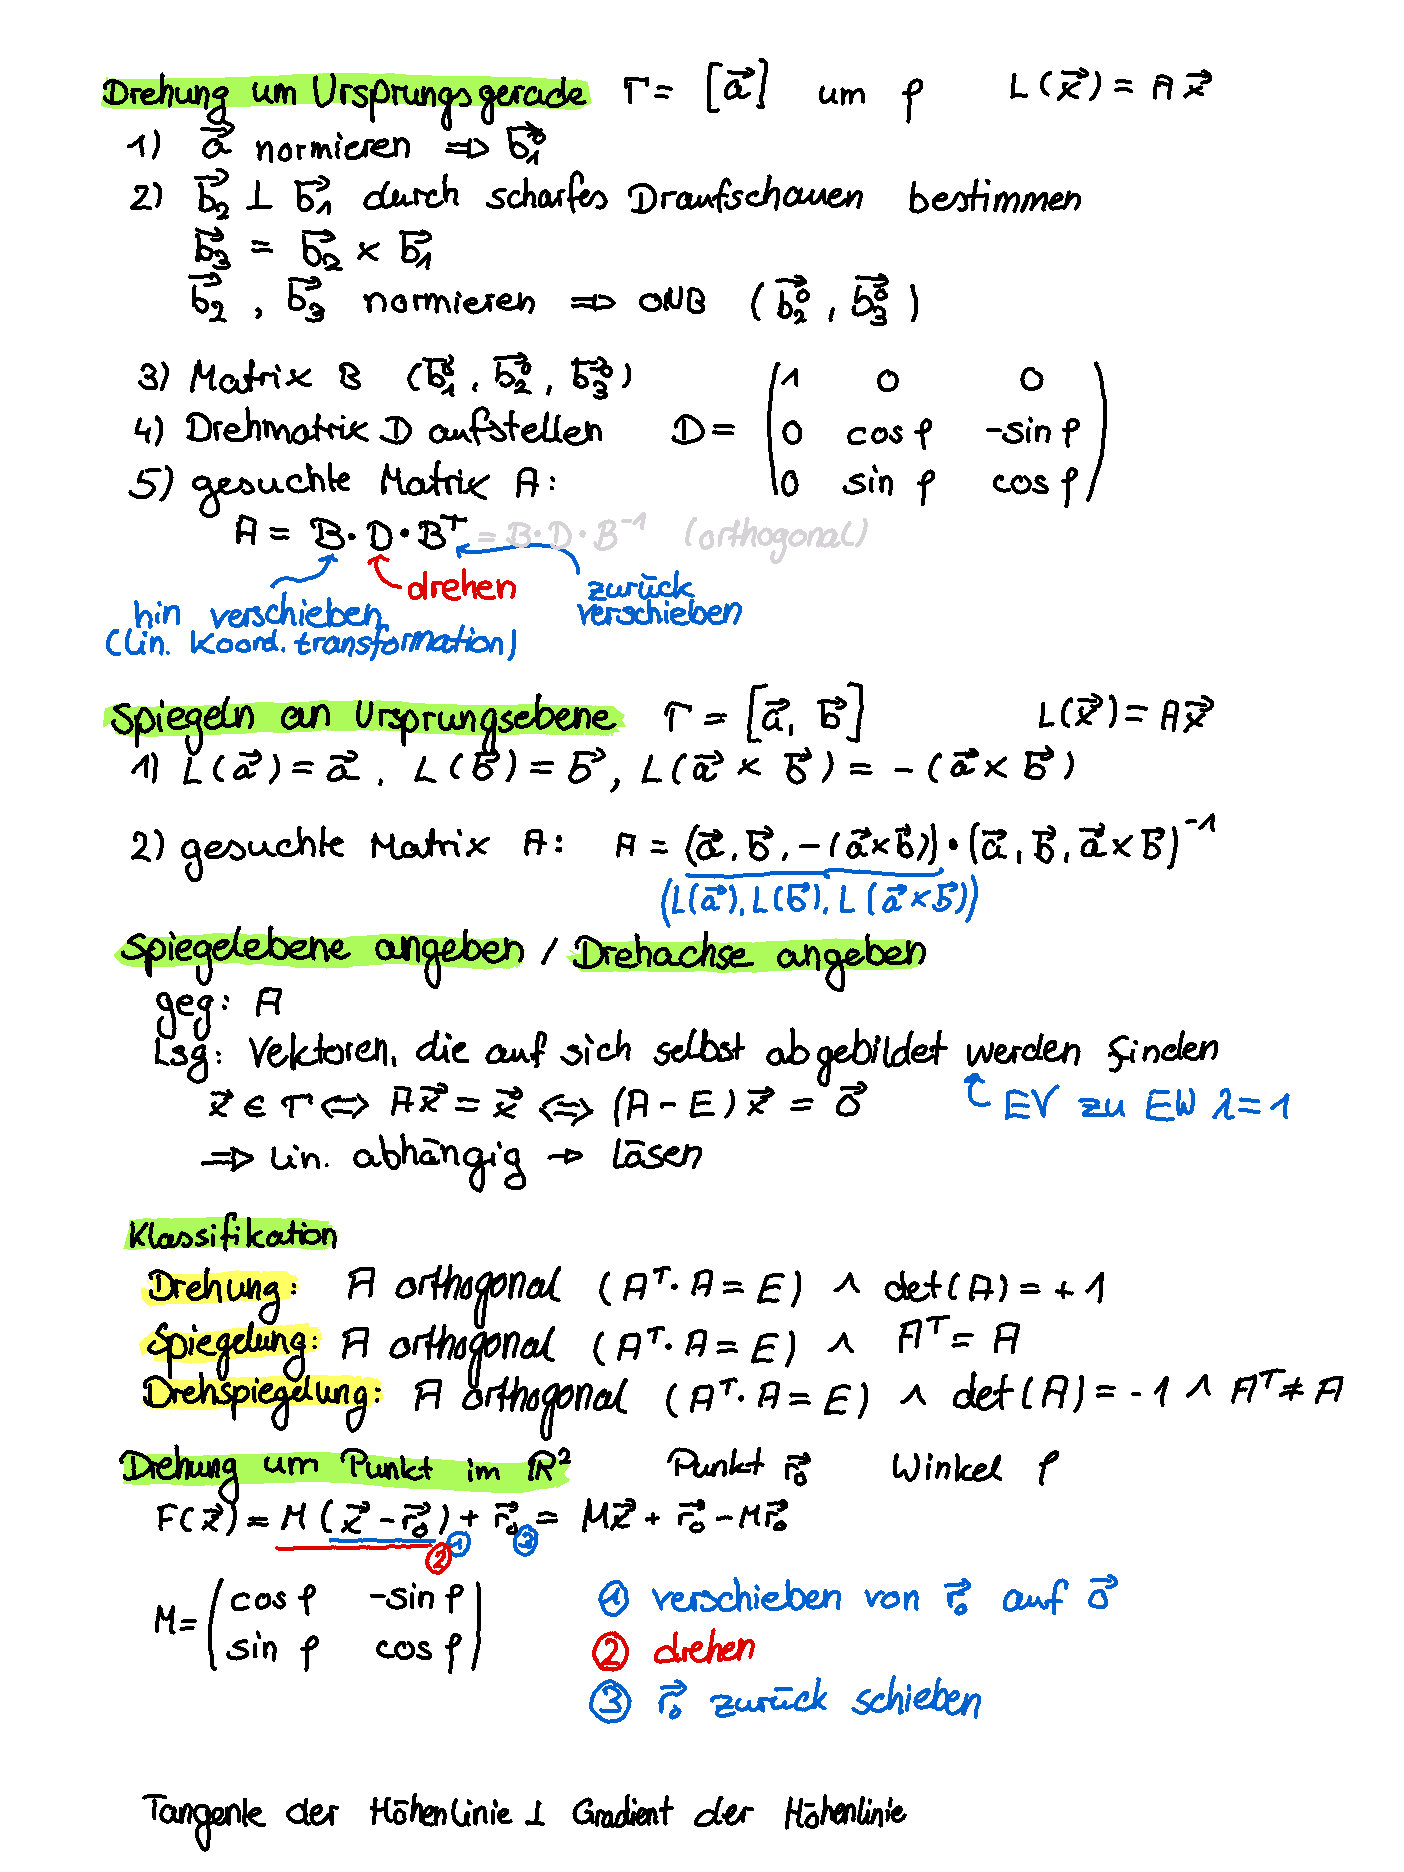 Drehung um Ursprungsgerade Γ = [a⃗] um φ L(x⃗) = A x⃗
1) a⃗ normieren ⇒ b⃗₁⁰
2) b⃗₂ ⊥ b⃗₁ durch scharfes Draufschauen bestimmen
b⃗₃ = b⃗₂ × b⃗₁
b⃗₂ , b⃗₃ normieren ⇒ ONB (b⃗₂⁰, b⃗₃⁰)
3) Matrix B (b⃗₁⁰, b⃗₂⁰, b⃗₃⁰)
4) Drehmatrix D aufstellen D = (1 0 0
0 cos φ -sin φ
0 sin φ cos φ)
5) gesuchte Matrix A:
A = B·D·Bᵀ = B·D·B⁻¹ (orthogonal)
drehen
hin verschieben
(Lin. Koord. transformation)
zurück
verschieben
Spiegeln an Ursprungsebene Γ = [a⃗, b⃗] L(x⃗) = A x⃗
1) L(a⃗) = a⃗, L(b⃗) = b⃗, L(a⃗ × b⃗) = -(a⃗ × b⃗)
2) gesuchte Matrix A: A = (a⃗, b⃗, -(a⃗×b⃗))·(a⃗, b⃗, a⃗×b⃗)⁻¹
(L(a⃗), L(b⃗), L(a⃗×b⃗))
Spiegelebene angeben / Drehachse angeben
geg: A
Lsg: Vektoren, die auf sich selbst abgebildet werden finden
x⃗ ∈ Γ ⇔ A x⃗ = x⃗ ⇔ (A - E) x⃗ = o⃗
EV zu EW λ = 1
⇒ Lin. abhängig → lösen
Klassifikation
Drehung: A orthogonal (Aᵀ·A = E) ∧ det(A) = +1
Spiegelung: A orthogonal (Aᵀ·A = E) ∧ Aᵀ = A
Drehspiegelung: A orthogonal (Aᵀ·A = E) ∧ det(A) = -1 ∧ Aᵀ ≠ A
Drehung um Punkt im ℝ² Punkt r⃗₀ Winkel φ
F(x⃗) = M (x⃗ - r⃗₀) + r⃗₀ = M x⃗ + r⃗₀ - M r⃗₀
② ① ③
M = (cos φ -sin φ
sin φ cos φ)
① verschieben von r⃗₀ auf o⃗
② drehen
③ r⃗₀ zurück schieben
Tangente der Höhenlinie ⊥ Gradient der Höhenlinie